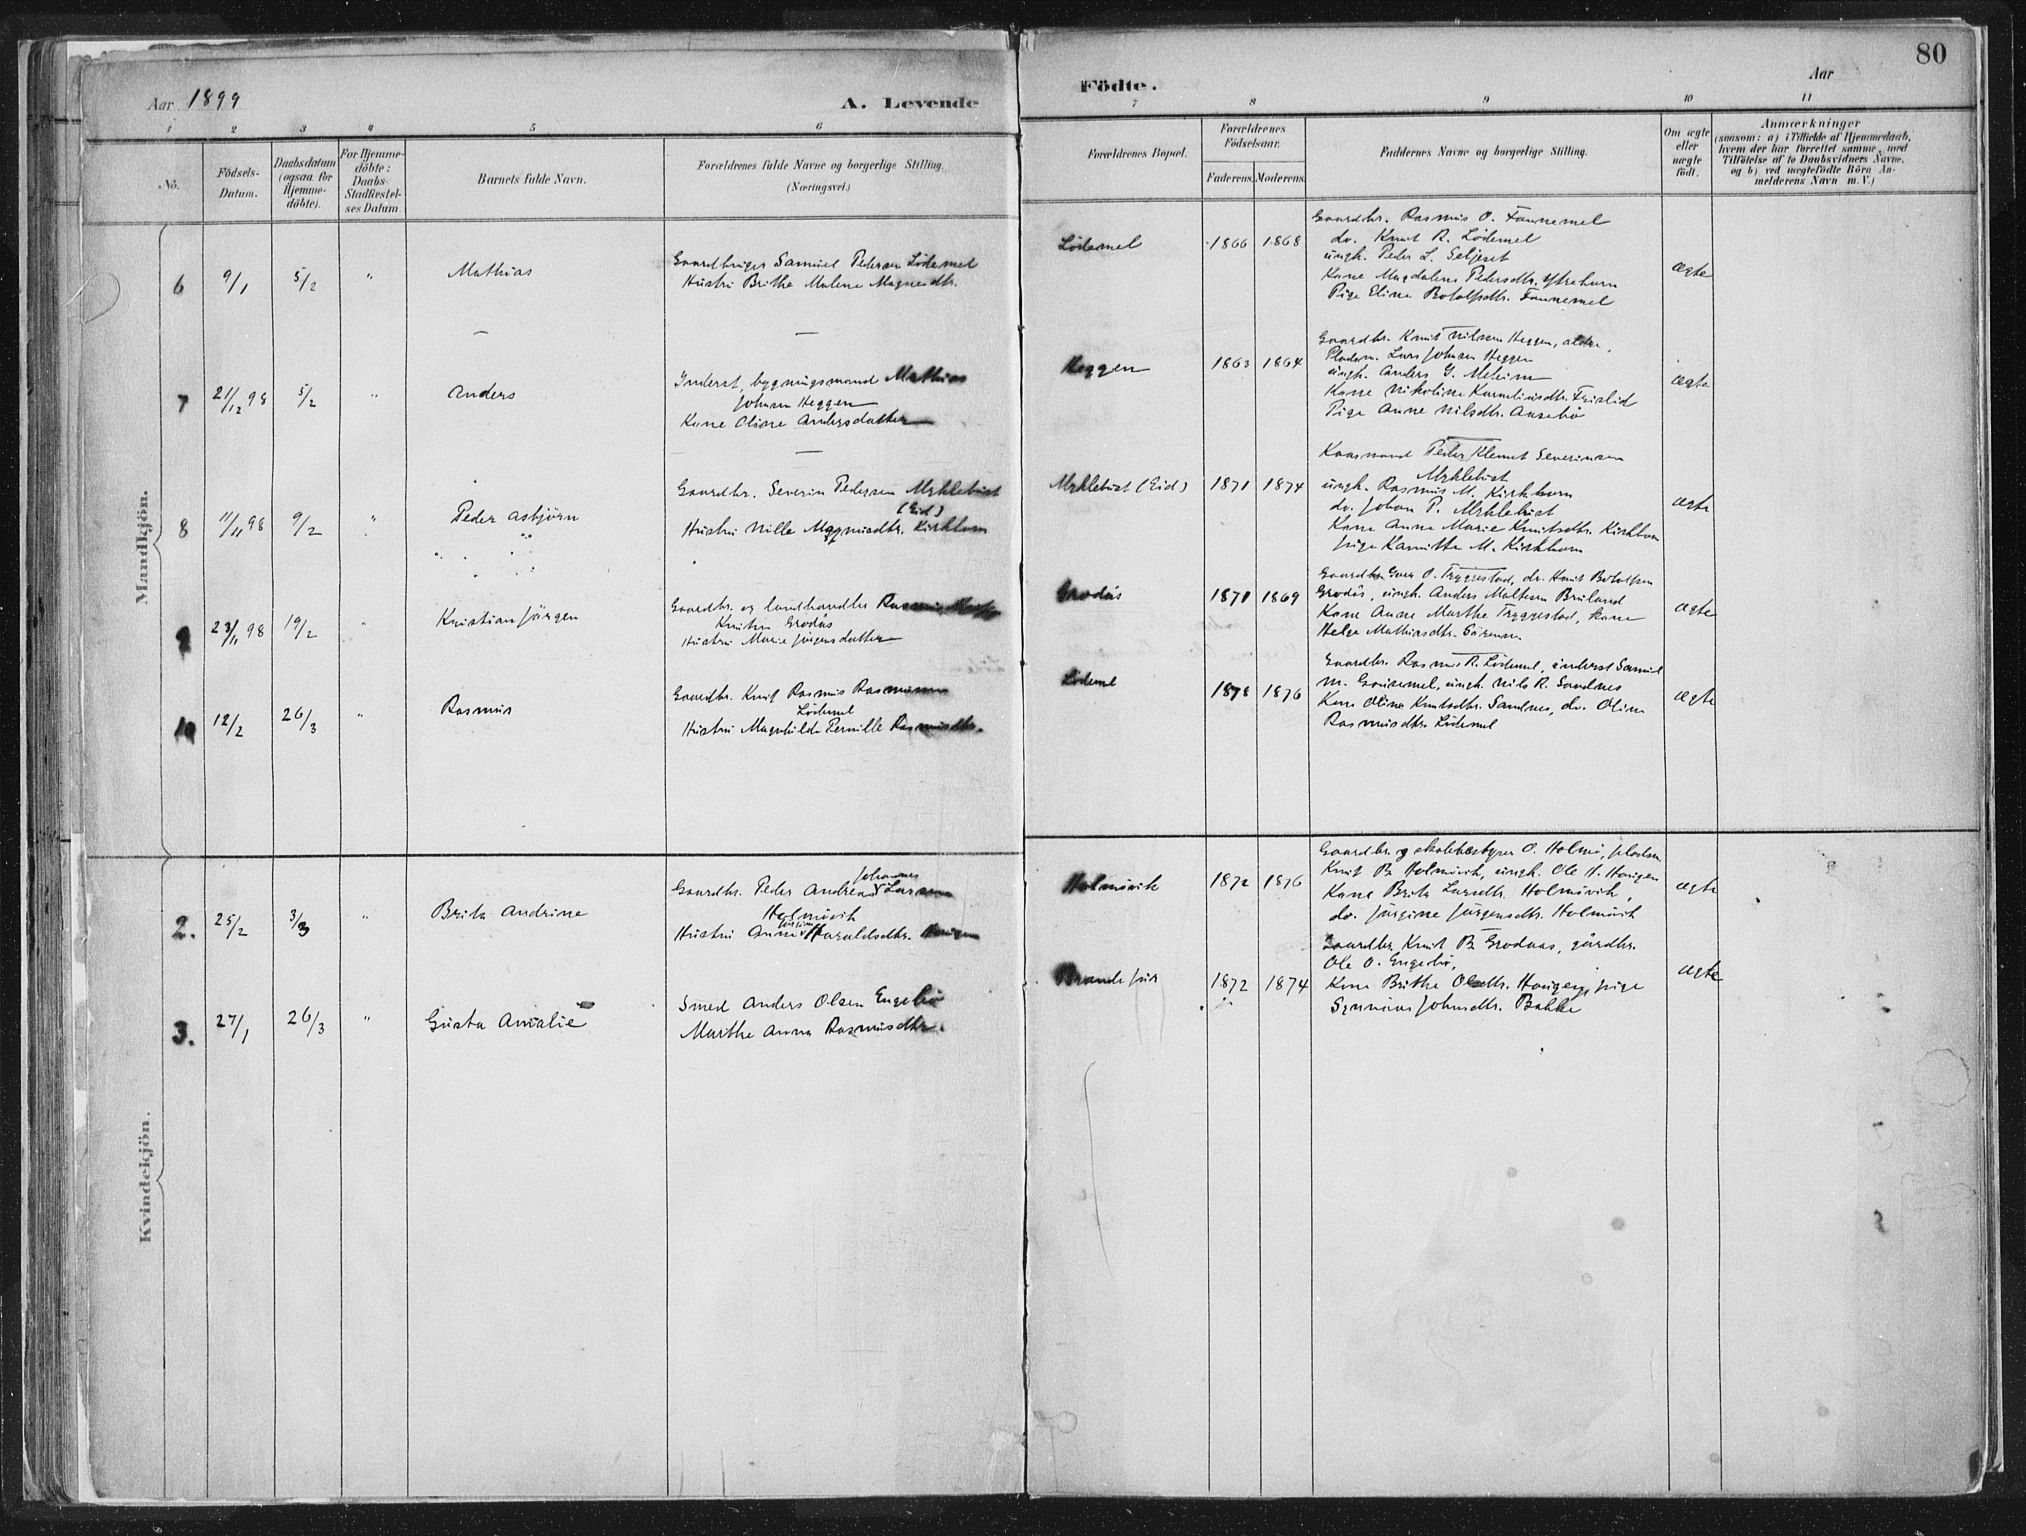 80
Aar 1899
A. Levende
Födte.
Aar
1 2 3 4 5 6
7 8 9 10 11
No.
Födsels-
Datum.
Daabsdatum
(ogsaa for
Hjemme-
döbte).
For Hjemme-
döbte:
Daabs-
Stadfæstel-
ses Datum.
Barnets fulde Navn.
Forældrenes fulde Navne og borgerlige Stilling.
(Næringsvei.)
Forældrenes Bopæl.
Forældrenes
Födselsaar.
Faderens. Moderens.
Faddernes Navne og borgerlige Stilling.
Om ægte
eller
uægte
födt.
Anmærkninger
(saasom: a) i Tilfælde af Hjemmedaab,
hvem der har forrettet samme, med
Tilföielse af to Daabsvidners Navne,
og b) ved uægtefödte Börn An-
melderens Navn m. V.)
Mandkjön.
6 9/1 5/2 " Mathias
Gaardbruger Samuel Pedersen Lödemel
Hustru Brithe Malene Magnedtr.
Lödemel 1866 1868
Gaardbr. Rasmus O. Fannemel
do. Knut R. Lödemel
ungk. Peder L. Seljeset
Kone Magdalene Pedersdtr. Ytrehorn
Pige Eline Botolfsdtr. Fannemel
ægte
7 21/12 98 5/2 " Anders
Inderst, bygningsmand Mathias
Johnsen Heggen
Kone Oline Andersdatter
Heggen 1863 1864
Gaardbr. Knut Nilssen Heggen, ældre,
Pladsm. Lars Johnsen Heggen
ungk. Anders Y. Meheim
Kone Nikoline Korneliusdtr. Frislid
Pige Anne Nilsdtr. Aasebö
ægte
8 11/11 98 9/2 " Peder Asbjörn
Gaardbr. Severin Pedersen Myklebust
(Eid)
Hustru Nille Magnusdtr. Kirkhorn
Myklebust (Eid) 1871 1874
Kaarmand Peder Klemet Severinsen
Myklebust
ungk. Rasmus M. Kirkhorn
do. Johan P. Myklebust
Kone Anne Marie Knutsdtr. Kirkhorn
pige Kamitta M. Kirkhorn
ægte
9 23/11 98 19/2 " Kristian Jörgen
Gaardbr. og landhandler Rasmus
Knutsen Grodås
Hustru Marie Jörgensdatter
Grodås 1871 1869
Gaardbr. O. Tryggestad, do. Knut Botolfsen
Grodås, ungk. Anders Mathesen Bruland
Kone Anne Marthe Tryggestad, kone
Helge Mathiasdtr. Sörensen
ægte
10 12/2 26/3 " Rasmus
Gaardbr. Knut Rasmus Rasmussen
Lödemel
Hustru Magnhilde Pernille Rasmusdtr.
Lödemel 1878 1876
Gaardbr. Rasmus R. Lödemel, inderst Samuel
M. Gausemel, ungk. Nils R. Sandnes
Kone Oline Knutsdtr. Sandnes, do. Oline
Rasmusdtr. Lödemel
ægte
Kvindekjön.
2. 25/2 3/3 " Brita Andrine
Johannes
Gaardbr. Peder Andreas Larsen
Holmövik
Hustru Anne Haraldsdtr.
Holmövik 1872 1876
Gaardbr. og skolebestyrer O. Holmö, pladsm.
Knut B. Holmövik, ungk. Ole H. Haugen
Kone Brita Larsdtr. Holmövik,
do. Jörgine Jörgensdtr. Holmövik
ægte
3. 27/1 26/3 " Gusta Amalie
Smed Anders Olsen Engebö
Marthe Anna Rasmusdtr.
1872 1874
Gaardbr. Knut B. Grodaas, gårdbr.
Ole O. Engebö,
Kone Brithe Olsdtr. Haugen, pige
Johnsdtr. Bakke
ægte